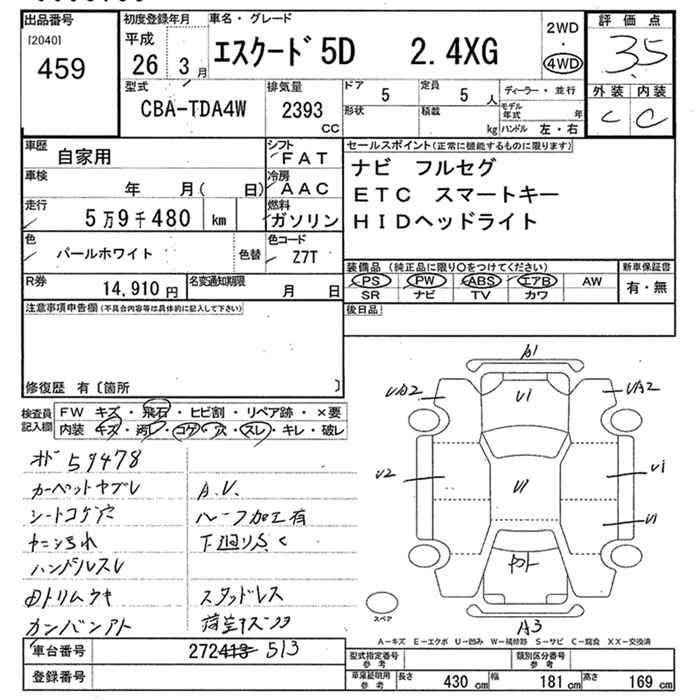 出品番号
[2040]
459
初度登録年月
平成
26 3月
車名・グレード
エスクード 5D 2.4XG
2WD
・
4WD
評価点
3.5
外装 内装
C C
型式
CBA-TDA4W
排気量
2393
CC
ドア 5
形状
定員 5 人
積載 kg
ディーラー・並行
モデル年式 年
ハンドル 左・右
車歴
自家用
シフト
FAT
車検
年 月( 日)
冷房
AAC
走行
5万9千480 km
燃料
ガソリン
色
パールホワイト
色替
色コード
Z7T
R券
14,910 円
名変通知期限
月 日
セールスポイント(正常に機能するものに限ります)
ナビ フルセグ
ETC スマートキー
HIDヘッドライト
装備品(純正品に限り○をつけてください)
新車保証書
PS PW ABS エアB AW
有・無
SR ナビ TV カワ
後日品
注意事項申告欄(不具合内容等は具体的に記入して下さい)
修復歴 有〔箇所 〕
検査員記入欄
FW キズ・飛石・ヒビ割・リペア跡・×要
内装 キズ・汚レ・コゲ・穴・スレ・キレ・破レ
59478
カーペットヤブレ
A.V.
シートコゲ穴
ルーフ加工有
ヤニ汚れ
下廻りふく
ハンドルスレ
内トリムウキ
スタッドレス
カンバンアト
荷室キズ
b1
U1
UA2
U2
U1
U1
U1
A3
スペア
A-キズ E-エクボ U-凹み W-補修跡 S-サビ C-腐食 XX-交換済
車台番号
272413 513
登録番号
型式指定番号
参考
類別区分番号
参考
車庫証明用
参考
長さ 430 cm 幅 181 cm 高さ 169 cm